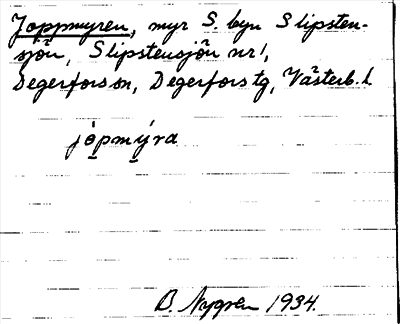 Joppmyren, myr S. byn Slipsten-
sjön, Slipstensjön nr 1,
Degerfors sn, Degerfors tg, Västerb. l.
jòpmýra
B. Nygren 1934.